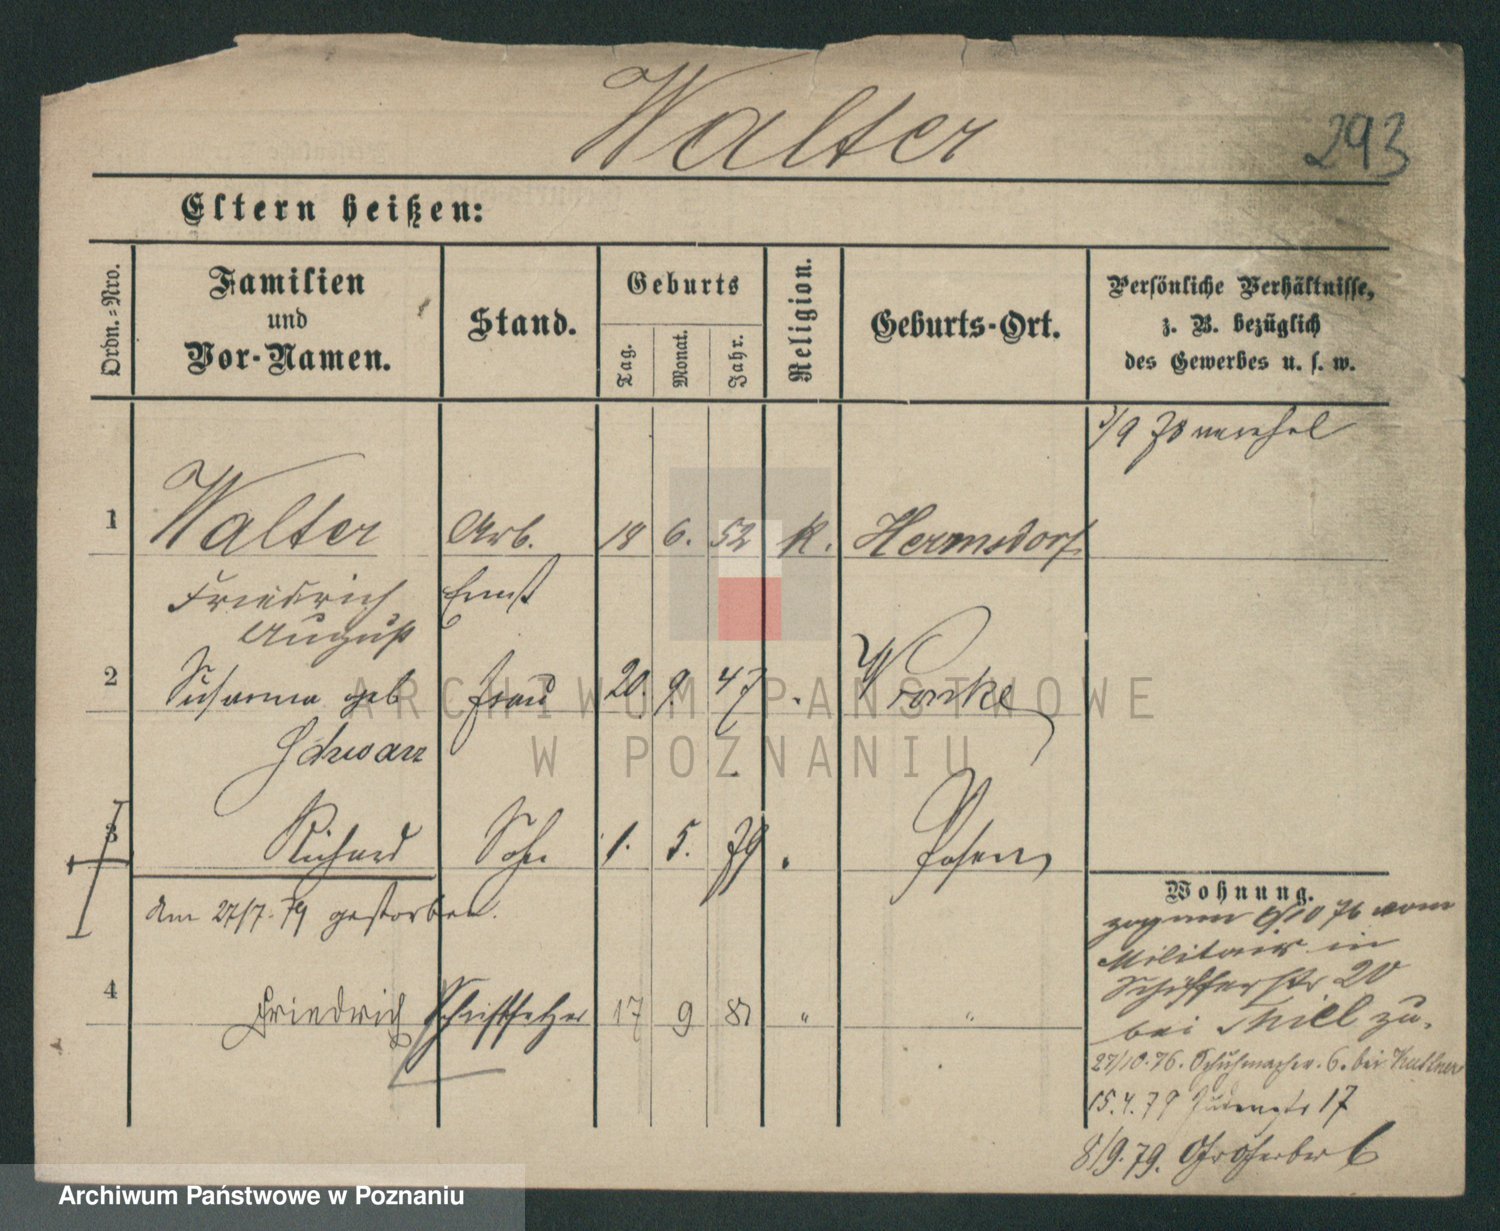 Walter
293
Eltern heißen:
Ordn.-Nro.
Familien
und
Vor-Namen.
Stand.
Geburts
Tag.
Monat.
Jahr.
Religion.
Geburts-Ort.
Persönliche Verhältnisse,
z. B. bezüglich
des Gewerbes u. s. w.
1/9 78
1 Walter Arb. 18 6. 52 K. Hermsdorf
Friedrich Ernst
August
2 Susanna geb Frau 20. 9. 47 . Wronke
Schwarz
3 Richard Sohn 1. 5. 79 . Posen
am 27/7. 79 gestorben.
4 Friedrich Schriftsetzer 17 9 81 " "
Wohnung.
76 vom
Militair in
Schifferstr 20
bei Thiel zu.
27/10. 76. Schuhmacher. 6. bei
15. 4. 79 Judenstr 17
8/9. 79. Gr Gerber 6
ARCHIWUM PAŃSTWOWE
W POZNANIU
Archiwum Państwowe w Poznaniu